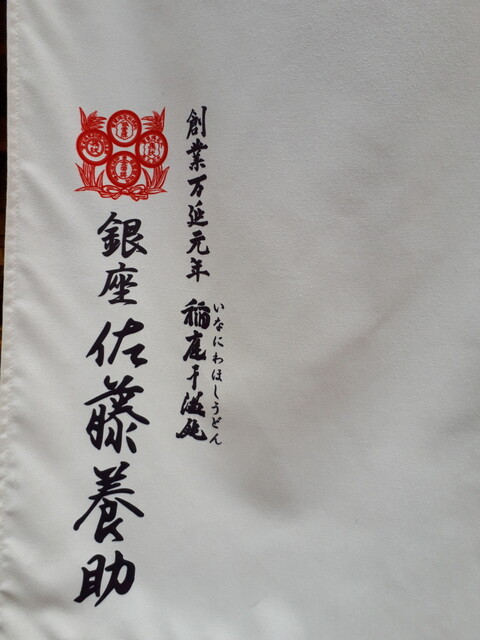 創業万延元年 稲庭干温飩
いなにわほしうどん
銀座 佐藤養助